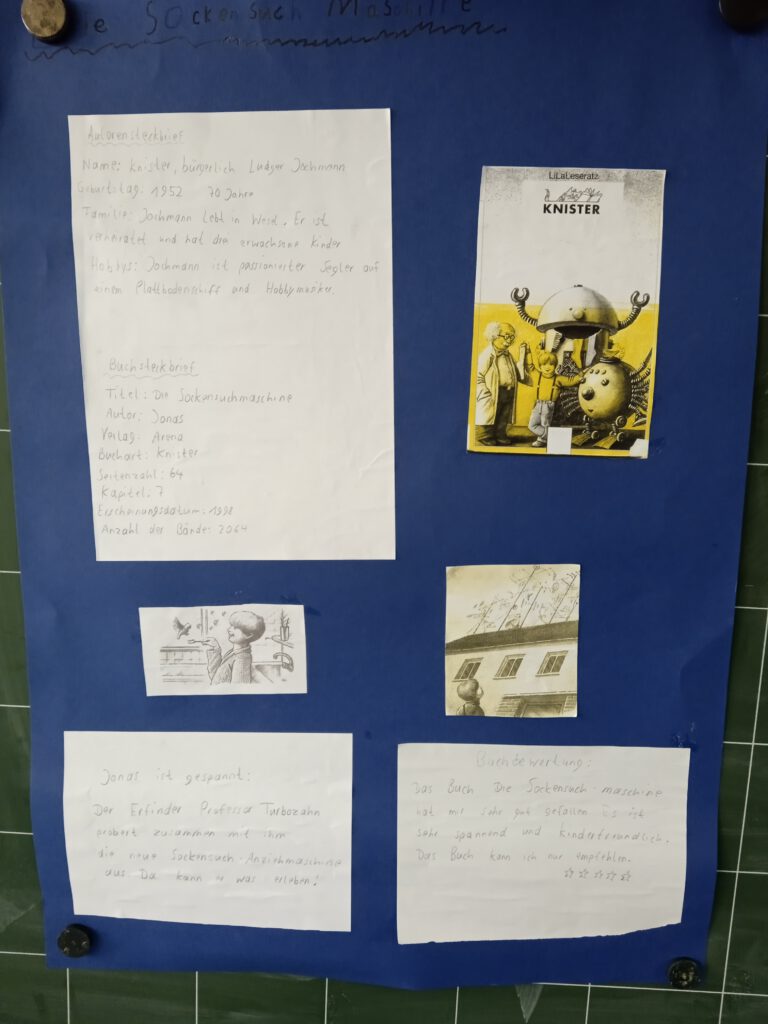 Die Sockensuch Maschine
Autorensteckbrief
Name: Knister, bürgerlich Ludger Jochmann
Geburtstag: 1952 70 Jahre
Familie: Jochmann lebt in Wesel. Er ist
verheiratet und hat drei erwachsene Kinder
Hobbys: Jochmann ist passionierter Segler auf
einem Plattbodenschiff und Hobbymusiker.
Buchsteckbrief
Titel: Die Sockensuchmaschine
Autor: Jonas
Verlag: Arena
Buchart: Knister
Seitenzahl: 64
Kapitel: 7
Erscheinungsdatum: 1998
Anzahl der Bände: 2064
LiLaLeseratz
KNISTER
Jonas ist gespannt:
Der Erfinder Professor Turbozahn
probert zusammen mit ihm
die neue Sockensuch-Anziehmaschine
aus Da kann er was erleben!
Buchbewertung:
Das Buch Die Sockensuch-maschine
hat mir sehr gut gefallen Es ist
sehr spannend und kinderfreundlich.
Das Buch kann ich nur empfehlen.
☆☆☆☆☆